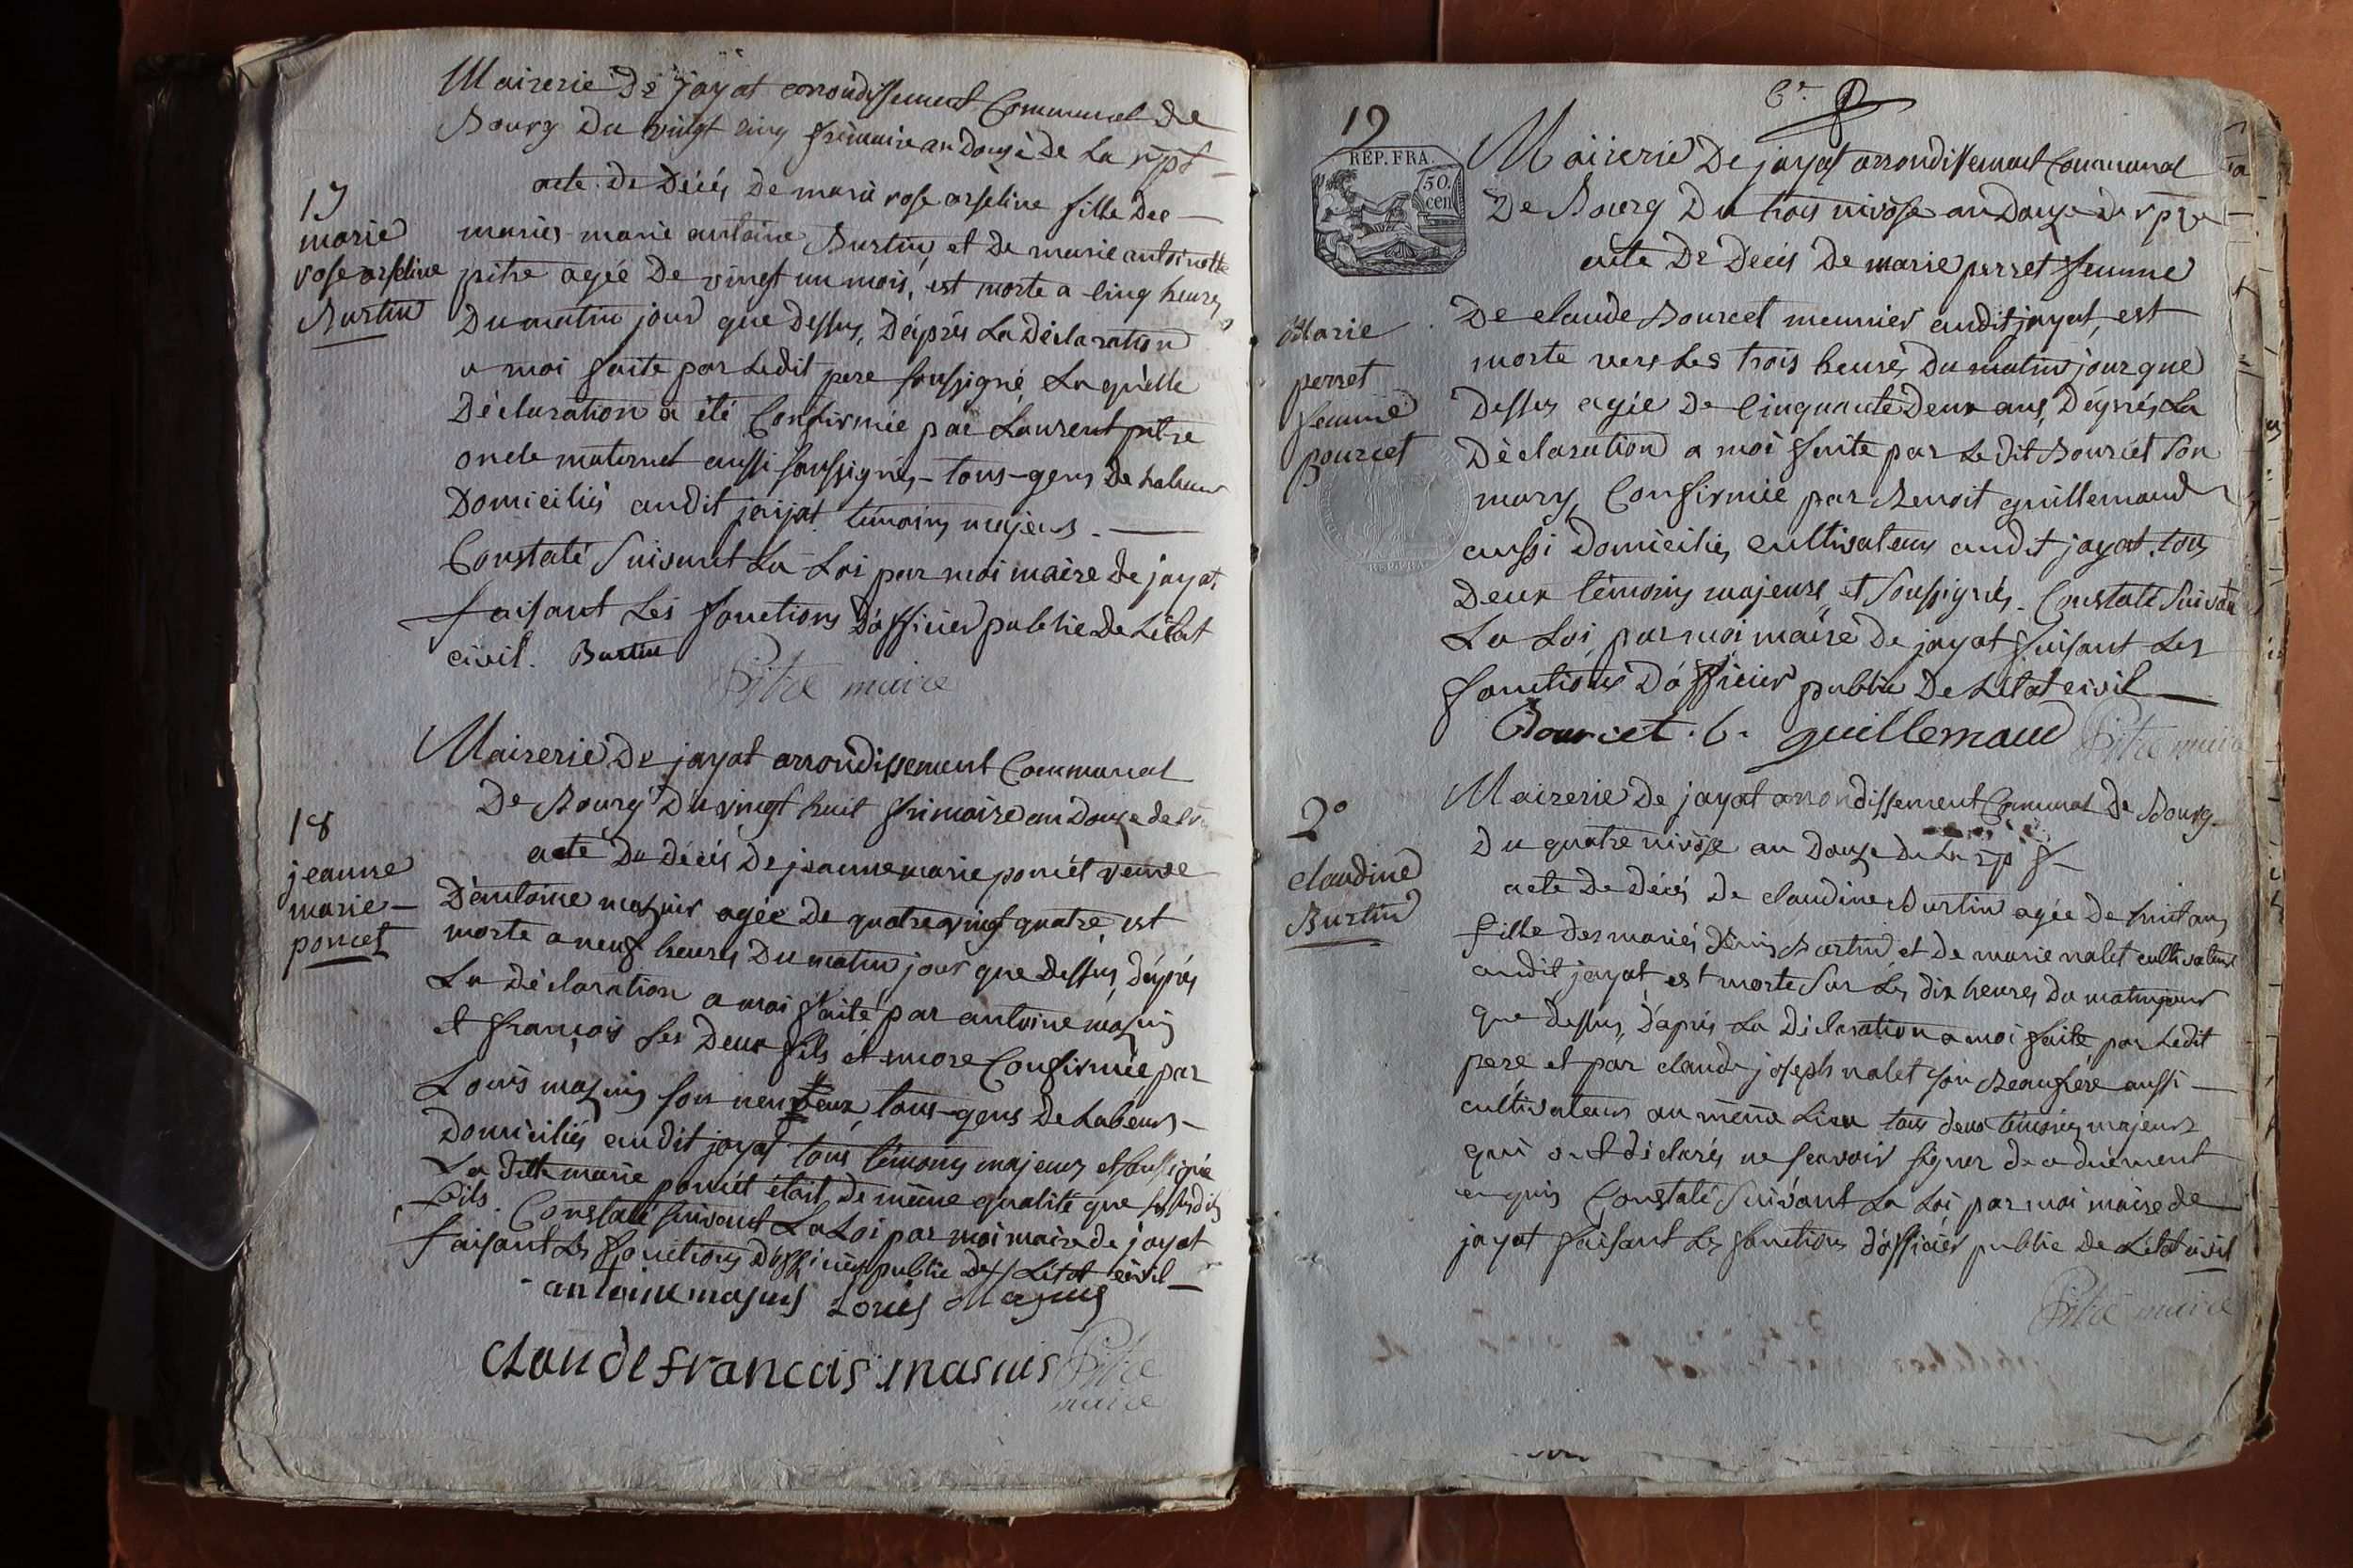 Mairerie De jayat arrondissement Communal De
Bourg Du vingt cinq frimaire an Douze De La rpt
acte de Décés De marie rose arseline fille des
17
marie
rose arseline
Burtin
mariés marie antoine Burtin et De marie antoinette
pitre agée De vingt un mois, est morte a cinq heures
Du matin jour que Dessus, D'après La Déclaration
a moi faite par Ledit pere soussigné Laquelle
Déclaration a été Confirmée par Laurent pitre
oncle maternel aussi soussignés - tous - gens De Labeur
Domiciliés audit jayat témoins majeurs.
Constaté Suivant La Loi par moi maire De jayat
faisant Les fonctions D'officier public De L'état
civil. Burtin
Pitre maire
Mairerie De jayat arrondissement Communal
De Bourg Du vingt huit frimaire an Douze de La
18
jeanne
marie
poncet
acte Du décés De jeanne marie poncet veuve
D'antoine masuis agée De quatre vingt quatre est
morte a neuf heures Du matin jour que Dessus, D'après
La Déclaration a moi faite par antoine masuis
et françois ses Deux fils et encore Confirmée par
Louis masuis son neuveux, tous gens De Labeurs
Domiciliés audit jayat tous témoins majeurs et soussignés
La ditte marie poncet était de même qualité que ses susdits
fils. Constaté suivant La Loi par moi maire de jayat
faisant Les fonctions D'officier public De L'état civil
antoine masuis Louis Masuis
claude francois masuis
Pitre
maire
6e.
19
REP. FRA.
50.
cen
Mairerie De jayat arrondissement Communal
De Bourg Du trois nivôse an Douze De rpt
acte De Décés De marie perret femme
Marie
perret
femme
pourcet
De claude Bourcet meunier audit jayat, est
morte vers Les trois heures Du matin jour que
Dessus agée De Cinquante Deux ans, D'après La
Déclaration a moi faite par Le dit Bourcet son
mary, Confirmée par Benoit guillemaud
aussi Domiciliés cultivateurs audit jayat, tous
Deux témoins majeurs et soussignés. Constaté Suivant
La Loi, par moi maire De jayat faisant Les
fonctions D'officier public De L'état civil
Bourcet. b. guillemaud Pitre maire
Mairerie De jayat arrondissement Communal De Bourg
Du quatre nivôse an Douze De La rp f
20
claudine
Burtin
acte De Décés De claudine Burtin agée De huit ans
fille Des mariés Denis Burtin et De marie nalet cultivateurs
audit jayat, est morte Sur Les dix heures Du matin jour
que Dessus, D'après La Déclaration a moi faite, par Ledit
pere et par claude joseph nalet son Beaufrere aussi
cultivateurs au même Lieu tous deux témoins majeurs
qui ont déclarés ne scavoir signer de ce duement
enquis Constaté Suivant La Loi par moi maire de
jayat faisant Les fonctions D'officier public De L'état civil
Pitre maire